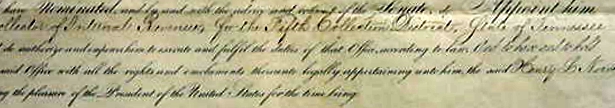 have Nominated, and by and with the advice and consent of the Senate, do Appoint him
Collector of Internal Revenue, for the Fifth Collection District, State of Tennessee
do authorize and empower him to execute and fulfil the duties of that Office according to law, And to have and to hold
said Office with all the rights and emoluments thereunto legally appertaining unto him, the said Henry L. Nor
the pleasure of the President of the United States for the time being